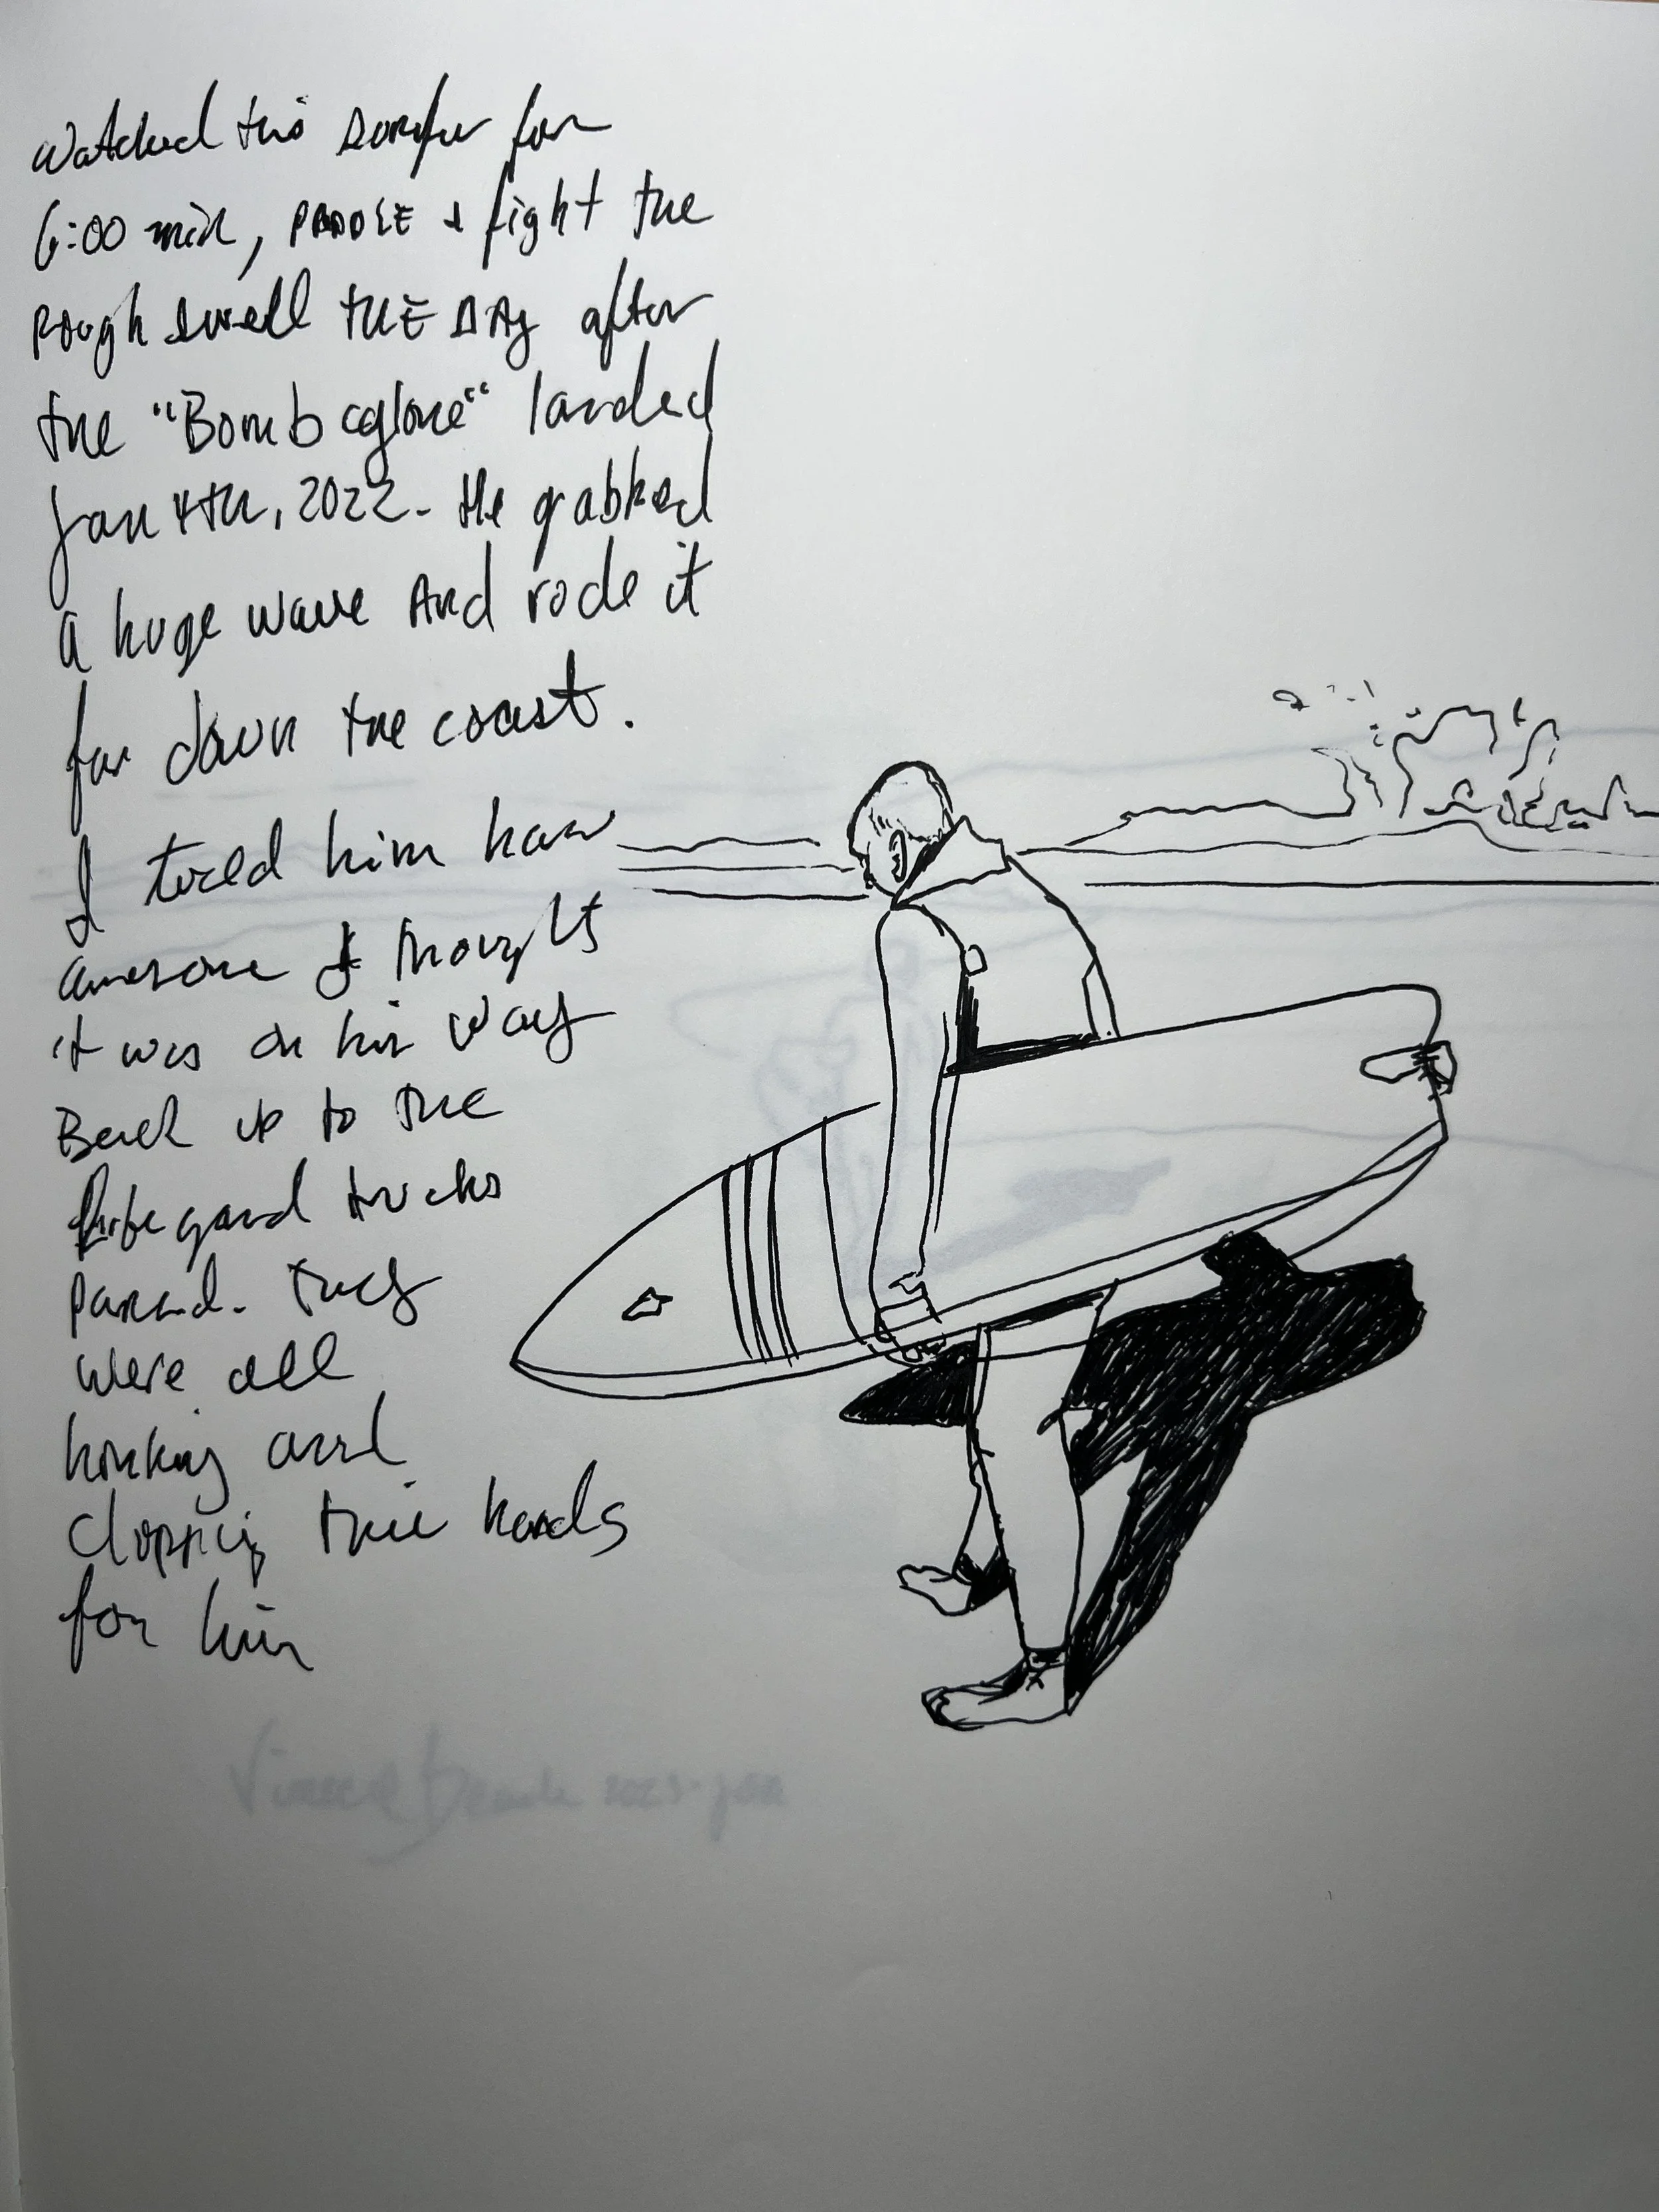 Watched this surfer for
6:00 min, PADDLE + fight the
Rough swell THE DAY after
the "Bomb cyclone" landed
Jan 4TH, 2022. He grabbed
a huge wave And rode it
far down the coast.
I told him how
awesome I thought
it was on his way
Back up to the
lifegard trucks
Parked. They
were all
honking and
clapping their hands
for him